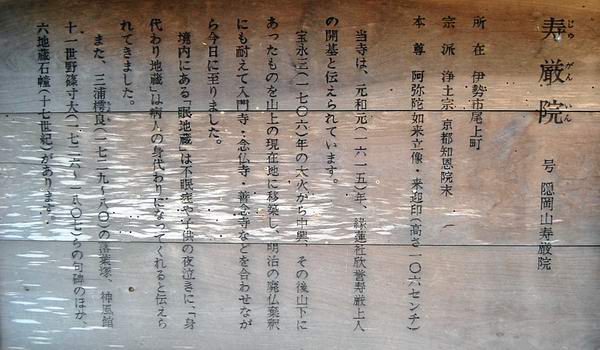 じゅ がん いん
寿巌院 号 隠岡山寿巌院
所在 伊勢市尾上町
宗派 浄土宗 京都知恩院末
本尊 阿弥陀如来立像・来迎印(高さ一〇六センチ)
当寺は、元和元(一六一五)年、縁蓮社欣誉寿巌上人
の開基と伝えられています。
宝永三(一七〇六)年の大火から中興、その後山下に
あったものを山上の現在地に移築し、明治の廃仏棄釈
にも耐えて入門寺・念仏寺・善念寺などを合わせなが
ら今日に至りました。
境内にある「眼地蔵」は不眠症や子供の夜泣きに、「身
代わり地蔵」は病人の身代わりになってくれると伝えら
れてきました。
また、三浦樗良(一七二九〜八〇)の落葉塚、神風館
十一世野篠寸大(一七二六〜一八〇七)らの句碑のほか、
六地蔵石幢(十七世紀)があります。